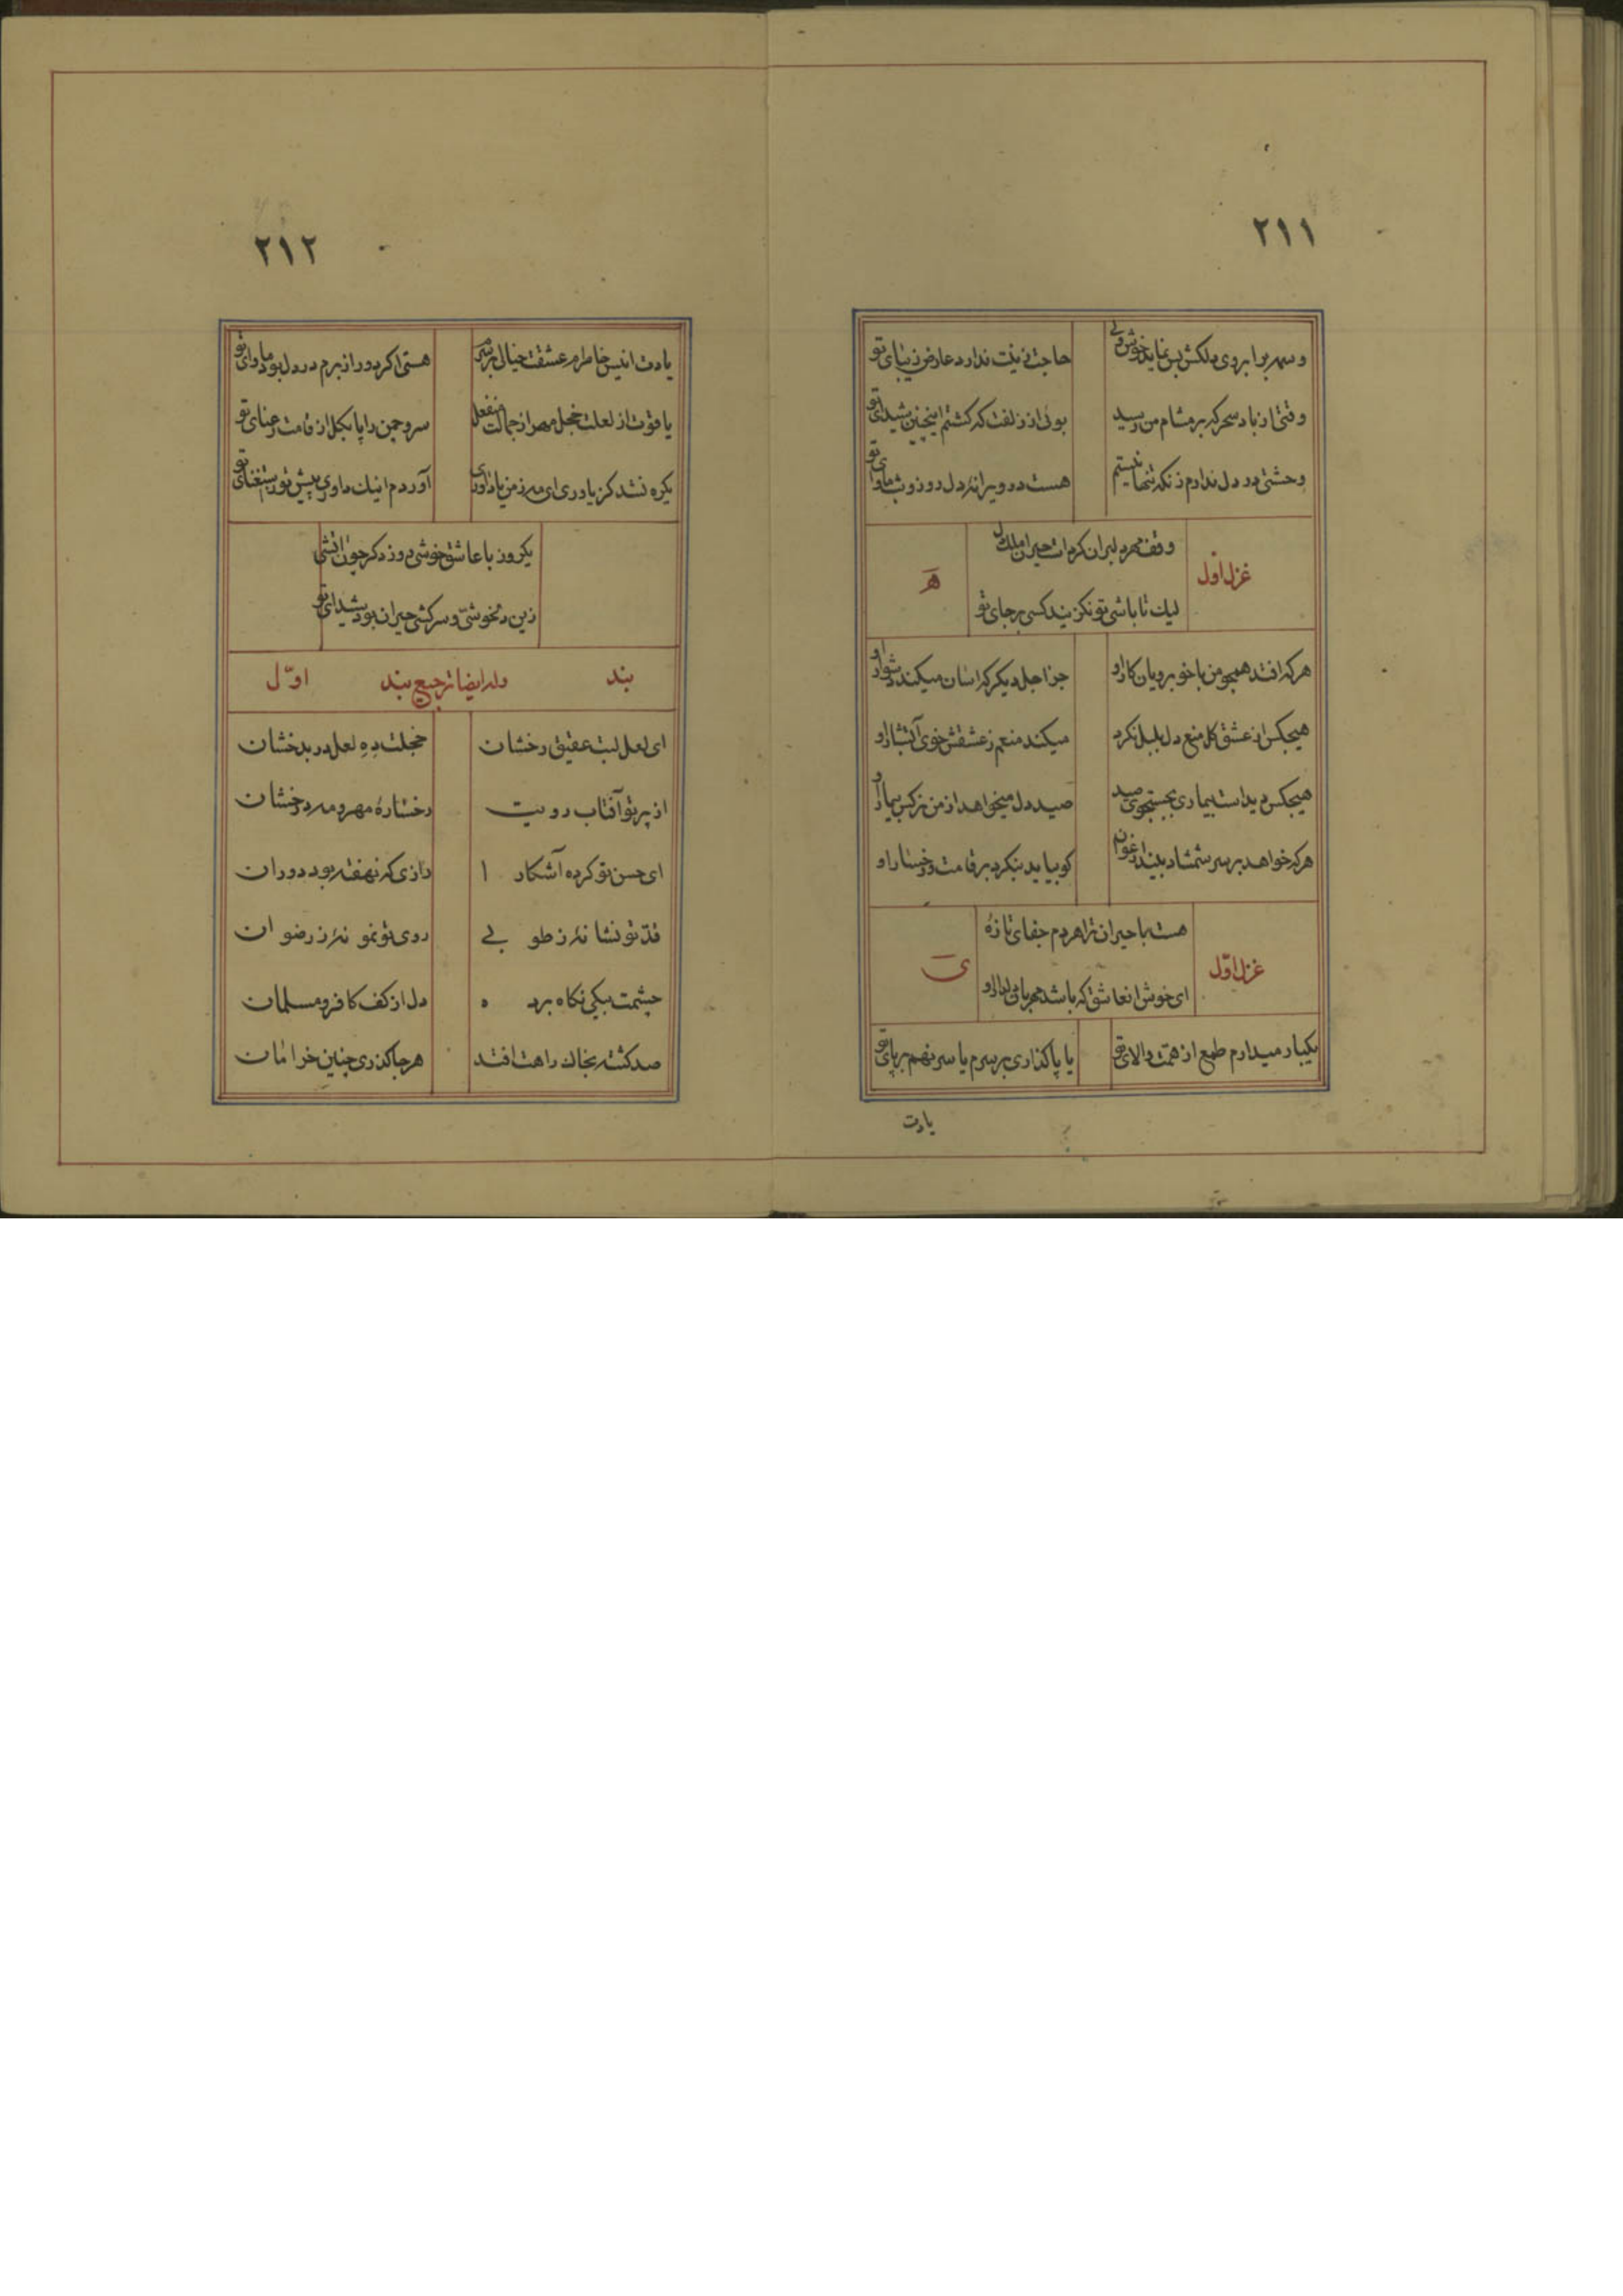 ۲۱۱
وسمه بر ابروی دلکش بس نماید خوش ولی
حاجت زینت ندارد عارض زیبای تو
وقتی از باد سحر که بر مشام من رسید
بوئی از زلفت که کشتم اینچنین شیدای تو
وحشتی در دل ندارم زنکه تنها نیستم
هست در ویرانهٔ دل روز و شب ماوای تو
غزل اول
وقف مهر دلبران کرد است حیران ملک دل
لیک تا باشی تو نکزیند کسی بر جای تو
هـ
هرکه افتد همچو من با خوبرویان کار او
جز اجل دیکر که اسان میکند دشوار او
هیچکس از عشق کل منع دل بلبل نکرد
میکند منعم ز عشقش خوی آتشبار او
هیچکس دید است بیماری بجستجوی صید
صید دل میخواهد از من نرکس بیمار او
هرکه خواهد بر سر شمشاد بیند ارغوان
کو بیاید بنکرد بر قامت و رخسار او
غزل اول
هست با حیران ترا هردم جفای تازهٔ
ای خوش انعاشق که باشد مهربان دلدار او
ی
یکبار میدارم طمع از همت والای تو
یا پا کذاری بر سرم یا سر نهم بر پای تو
یادت
۲۱۲
یادت انیس خاطرم عشقت خیال بر سرم
هستی اکر دور از برم در دل بود ماوای تو
یاقوت از لعلت خجل مهر از جمالت منفعل
سرو چمن را پا بکل از قامت رعنای تو
یکره نشد کز یادری ای مه ز من یاد آوری
آوردم اینک داوری پیش تو ز استغنای تو
یکروز با عاشق خوشی روز دکر چون اتشی
زین دلخوشی و سرکشی حیران بود شیدای تو
بند
وله ایضا ترجیع بند
اوّل
ای لعل لبت عقیق رخشان
خجلت ده لعل در بدخشان
از پرتو آفتاب رویت
رخسارهٔ مهر و مه درخشان
ای حسن تو کرده آشکارا
رازی که نهفته بود دوران
قدّ تو نشانهٔ ز طوبی
روی تو نمونهٔ ز رضوان
چشمت بیکی نکاه برده
دل از کف کافر و مسلمان
صد کشته بخاک راهت افتد
هرجا کذری چنین خرامان